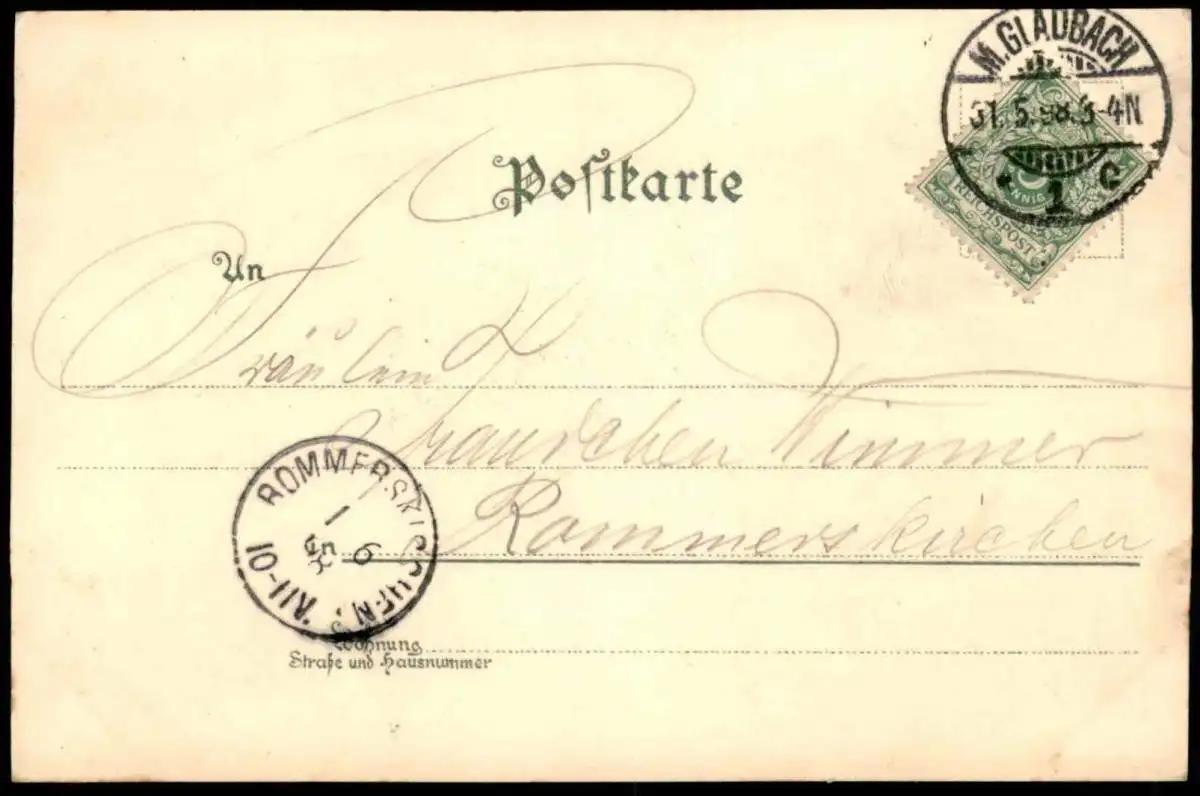 M. GLADBACH
31.5.98.3-4N
1 c
PFENNIG
REICHSPOST
Postkarte
An
Fräulein
Traudchen Wimmer
Rommerskirchen
ROMMERSKIRCHEN
1 6
10-11V
Wohnung
Straße und Hausnummer